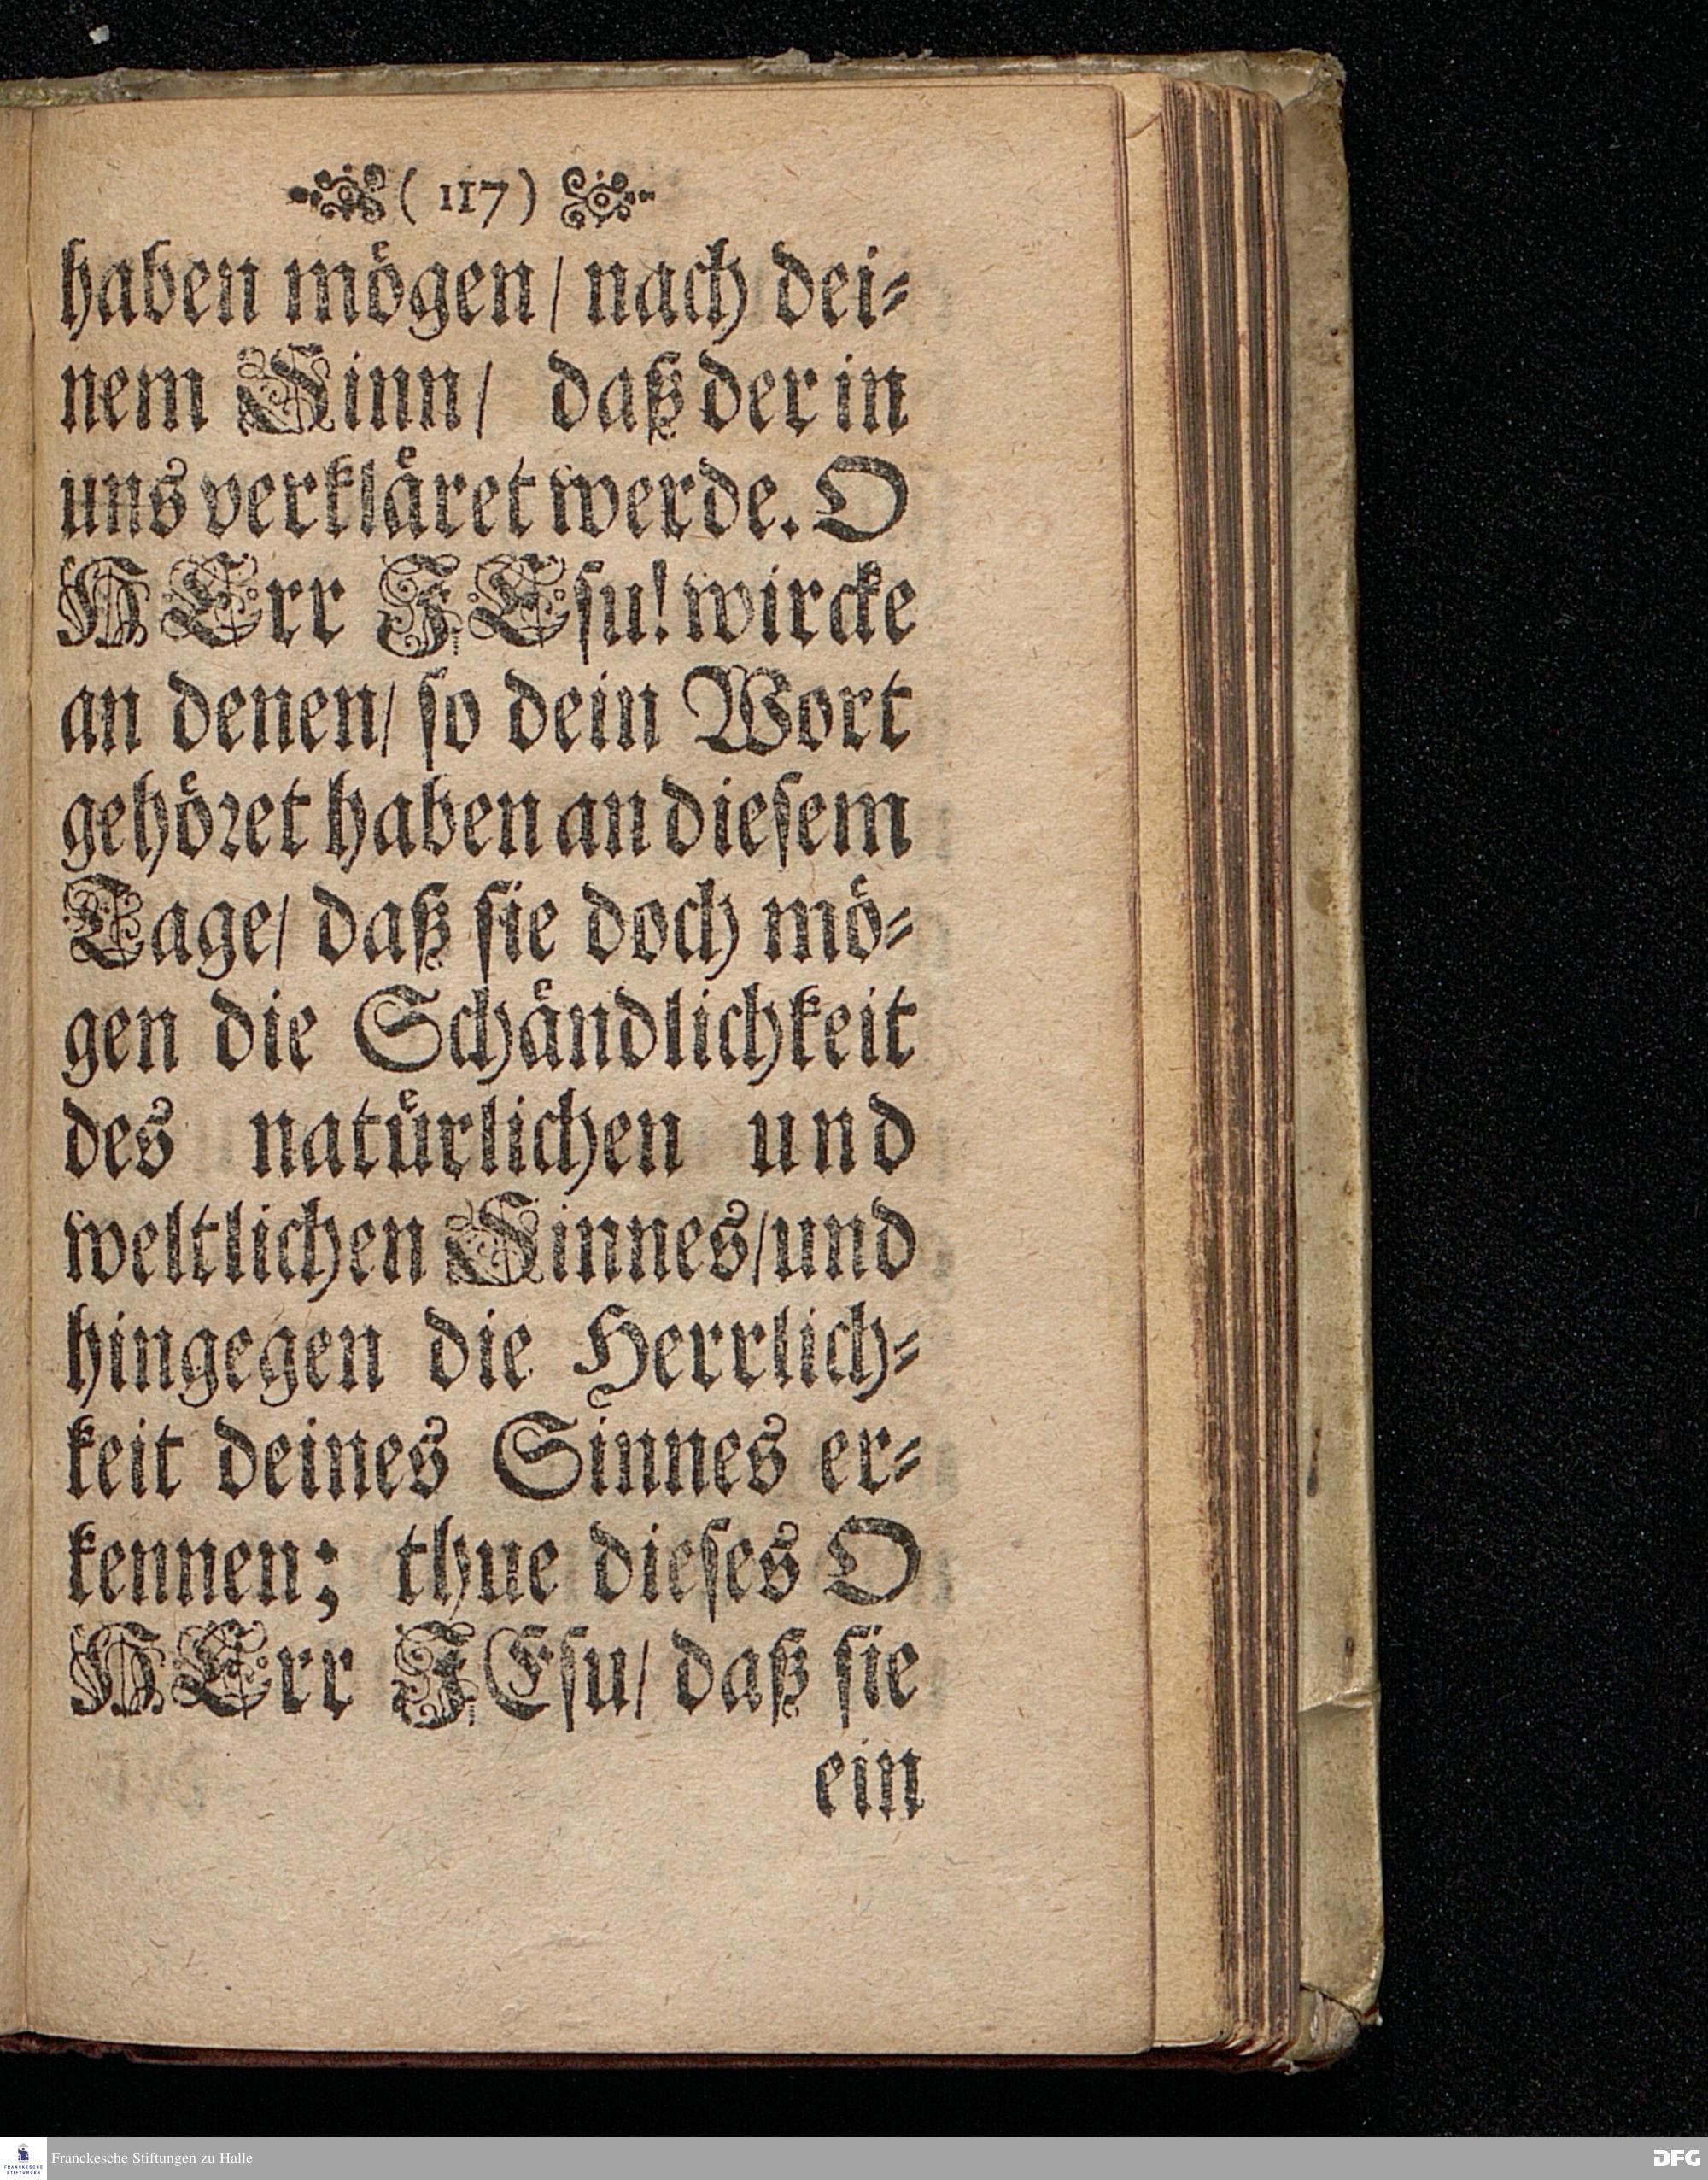 ( 117 )
haben mögen/ nach dei-
nem Sinn/ daß der in
uns verkläret werde. O
HErr JEsu! wircke
an denen/ so dein Wort
gehöret haben an diesem
Tage/ daß sie doch mö-
gen die Schändlichkeit
des natürlichen und
weltlichen Sinnes/ und
hingegen die Herrlich-
keit deines Sinnes er-
kennen; thue dieses O
HErr JEsu/ daß sie
ein
FRANCKESCHE
STIFTUNGEN
Franckesche Stiftungen zu Halle
DFG